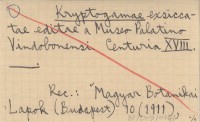 Kryptogamae exsicca-
tae editae a Museo Palatino
Vindobonensi Centuria XVIII.
Rec.: "Magyar Botanikai
Lapok (Budapest) 10 (1911)